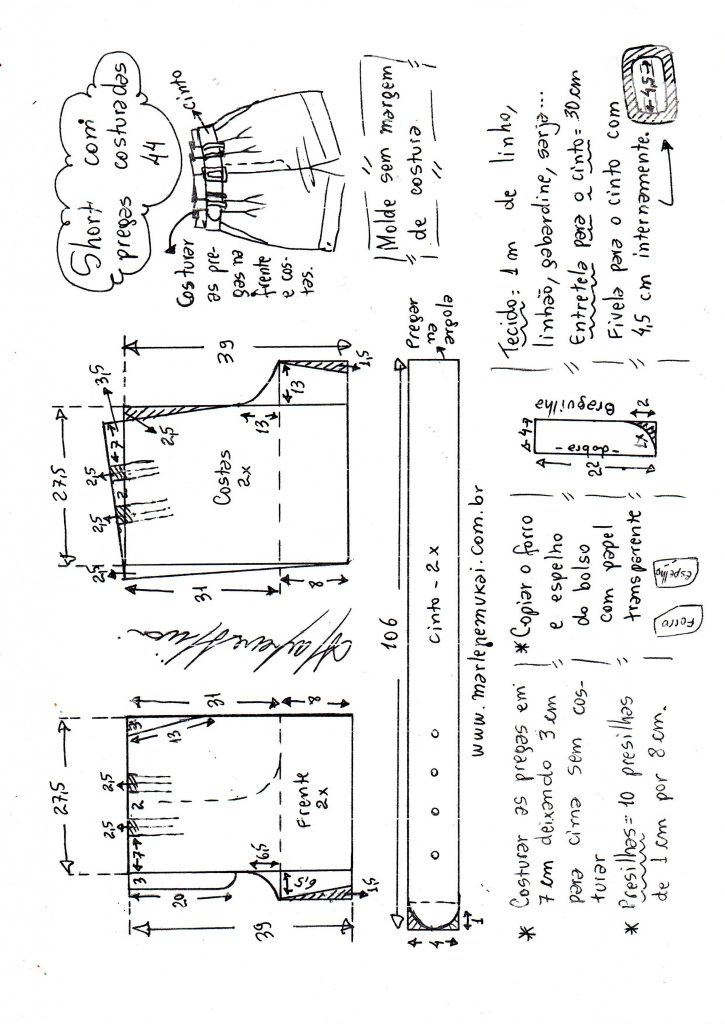 Short com
pregas costuradas
44
cinto
Costurar
as pre-
gas na
frente
e cos-
tas.
Molde sem margem
de costura
27,5
39
3,5
7
2,5
2,5
2
2,5
2,5
Costas
2x
13
13
1,5
31
8
27,5
31
8
3
13
2,5
2
2,5
7
3
20
6,5
6,5
1,5
39
Frente
2x
106
cinto - 2x
Pregar
na
argola
4
1
www.marlenemukai.com.br
* Costurar as pregas em
7 cm deixando 3 cm
para cima sem cos-
turar
* Presilhas = 10 presilhas
de 1 cm por 8 cm.
* Copiar o forro
e espelho
do bolso
com papel
transparente
Forro
Espelho
4
22
- dobra -
1x
2
Braguilha
Tecido: 1 m de linho,
linhão, gabardine, sarja...
Entretela para o cinto = 30 cm
Fivela para o cinto com
4,5 cm internamente.
4,5